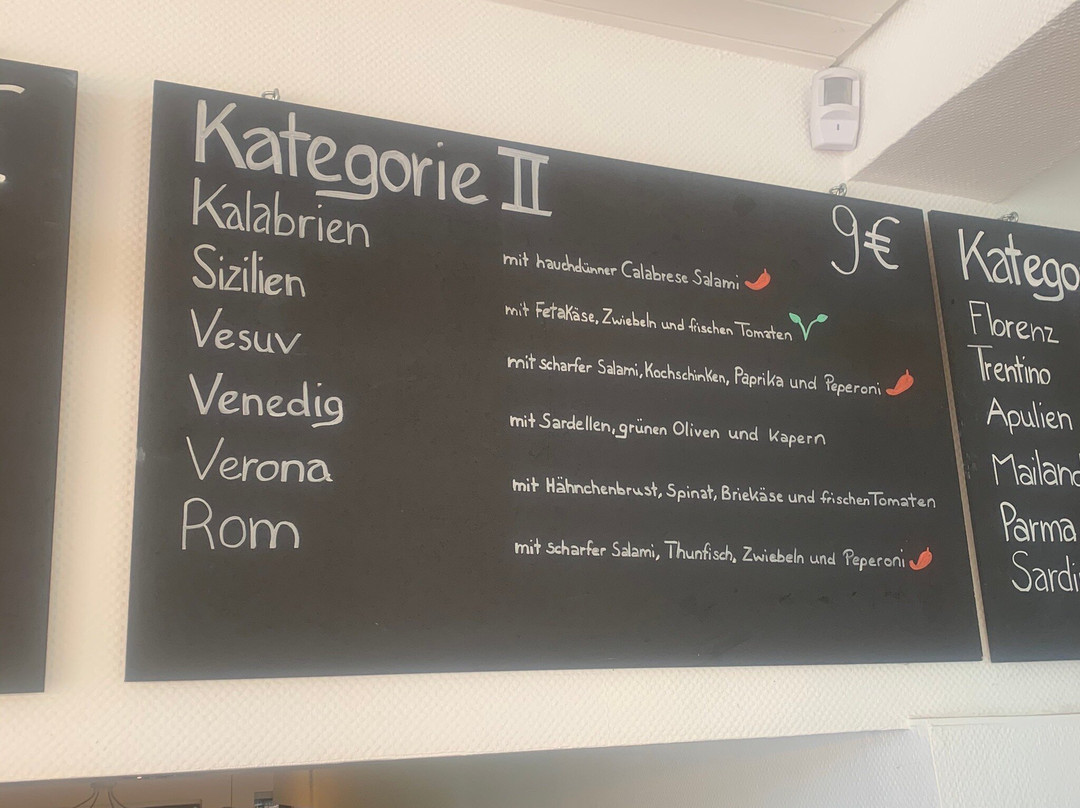 Kategorie II
9€
Kalabrien
mit hauchdünner Calabrese Salami
Sizilien
mit Fetakäse, Zwiebeln und frischen Tomaten
Vesuv
mit scharfer Salami, Kochschinken, Paprika und Peperoni
Venedig
mit Sardellen, grünen Oliven und Kapern
Verona
mit Hähnchenbrust, Spinat, Briekäse und frischen Tomaten
Rom
mit scharfer Salami, Thunfisch, Zwiebeln und Peperoni
Katego
Florenz
Trentino
Apulien
Mailand
Parma
Sardi